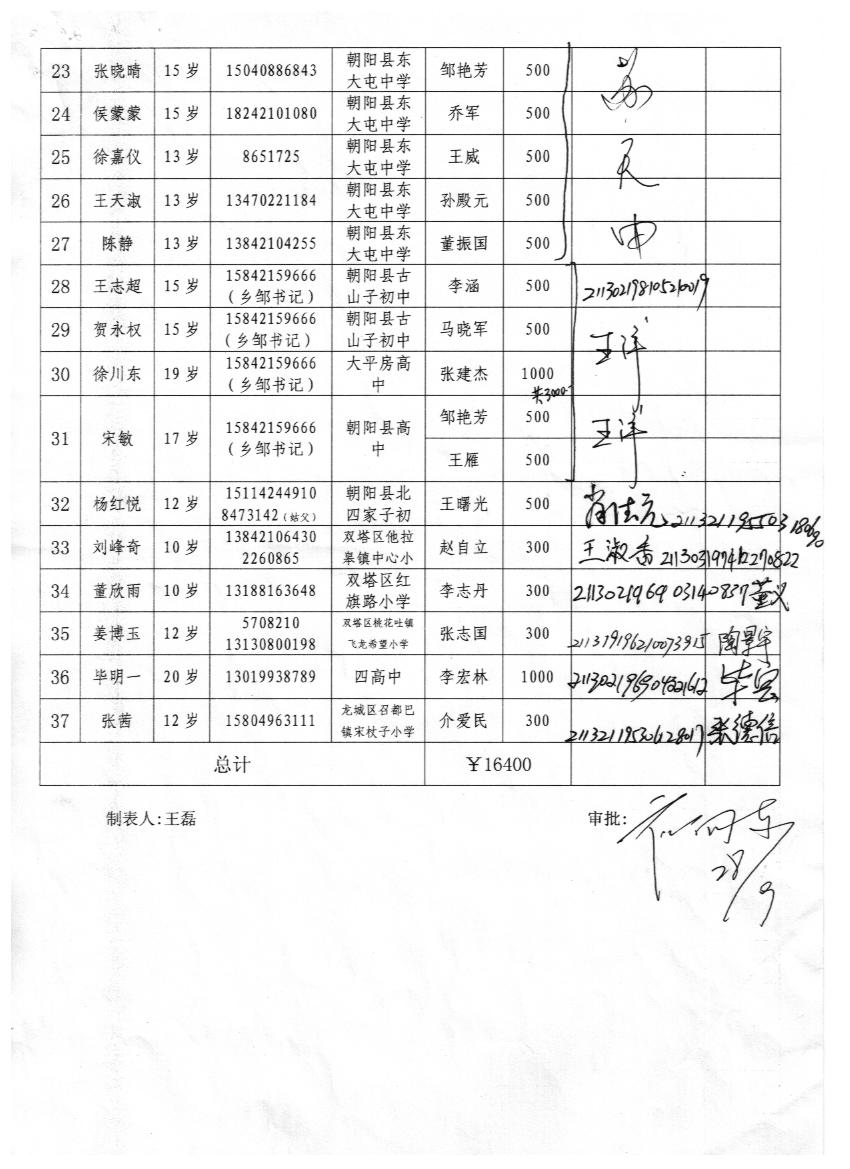 23 张晓晴 15 岁 15040886843 朝阳县东 邹艳芳 500
大屯中学
24 侯蒙蒙 15 岁 18242101080 朝阳县东 乔军 500
大屯中学
25 徐嘉仪 13 岁 8651725 朝阳县东 王威 500
大屯中学
26 王天淑 13 岁 13470221184 朝阳县东 孙殿元 500
大屯中学
27 陈静 13 岁 13842104255 朝阳县东 董振国 500
大屯中学
28 王志超 15 岁 15842159666 朝阳县古 李涵 500
(乡邹书记) 山子初中
29 贺永权 15 岁 15842159666 朝阳县古 马晓军 500 王洋
(乡邹书记) 山子初中
30 徐川东 19 岁 15842159666 大平房高 张建杰 1000
(乡邹书记) 中
共3000-
31 宋敏 17 岁 15842159666 朝阳县高 邹艳芳 500 王洋
(乡邹书记) 中 王雁 500
32 杨红悦 12 岁 15114244910 朝阳县北 王曙光 500
8473142(姑父) 四家子初
33 刘峰奇 10 岁 13842106430 双塔区他拉 赵自立 300 王淑香
2260865 皋镇中心小
34 董欣雨 10 岁 13188163648 双塔区红 李志丹 300
旗路小学
35 姜博玉 12 岁 5708210 双塔区桃花吐镇 张志国 300
13130800198 飞龙希望小学
36 毕明一 20 岁 13019938789 四高中 李宏林 1000
37 张茜 12 岁 15804963111 龙城区召都巴 介爱民 300 张德信
镇宋杖子小学
总计 ￥16400
制表人:王磊 审批:
28/9